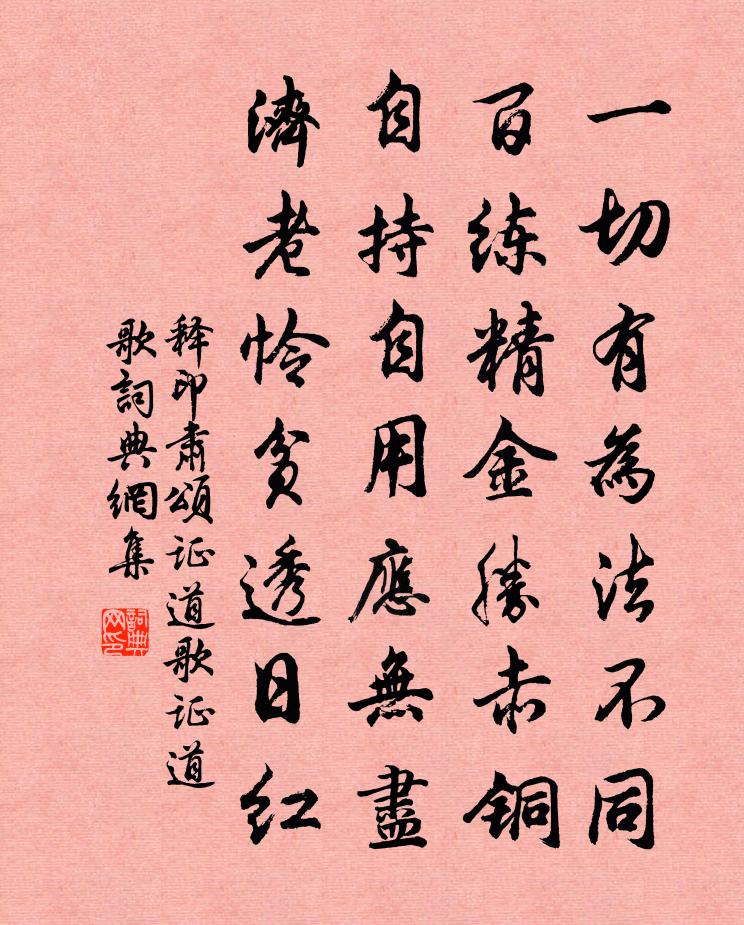 一切有為法不同
百练精金勝赤铜
自持自用應無盡
濟老怜贫透日红
释印肃頌证道歌证道
歌詞典網集
詞典網印